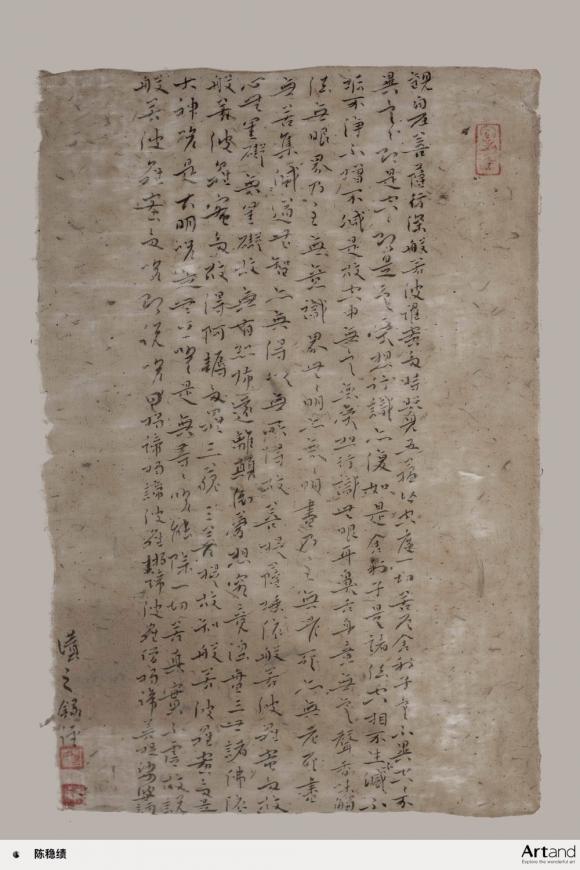 觀自在菩薩行深般若波羅蜜多時照見五蘊皆空度一切苦厄舍利子色不異空々不
異色々即是空々即是色受想行識亦復如是舍利子是諸法空相不生不滅不
垢不淨不增不減是故空中無色無受想行識無眼耳鼻舌身意無色聲香味觸
法無眼界乃至無意識界無々明亦無々明盡乃至無老死亦無老死盡
無苦集滅道無智亦無得以無所得故菩提薩埵依般若波羅蜜多故
心無罣礙無罣礙故無有恐怖遠離顛倒夢想究竟涅槃三世諸佛依
般若波羅蜜多故得阿耨多羅三藐三菩提故知般若波羅蜜多是
大神咒是大明咒是無上咒是無等々咒能除一切苦真實不虛故說
般若波羅蜜多咒即說咒曰揭諦揭諦波羅揭諦波羅僧揭諦菩提娑婆訶
之錄
陈稳绩
Artand
Explore the wonderful art